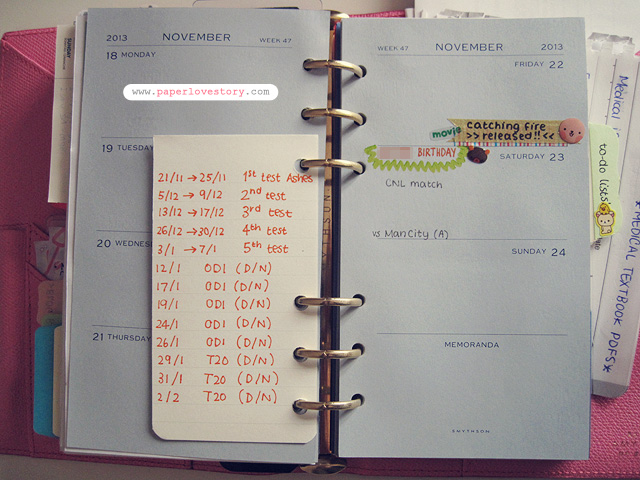 2013 NOVEMBER WEEK 47
18 MONDAY
www.paperlovestory.com
19 TUESDAY
20 WEDNES
21 THURSDAY
21/11 → 25/11 1st test Ashes
5/12 → 9/12 2nd test
13/12 → 17/12 3rd test
26/12 → 30/12 4th test
3/1 → 7/1 5th test
12/1 ODI (D/N)
17/1 ODI (D/N)
19/1 ODI (D/N)
24/1 ODI (D/N)
26/1 ODI (D/N)
29/1 T20 (D/N)
31/1 T20 (D/N)
2/2 T20 (D/N)
WEEK 47 NOVEMBER 2013
FRIDAY 22
movie catching fire
>> released!! <<
BIRTHDAY
SATURDAY 23
CNL match
vs ManCity (A)
SUNDAY 24
MEMORANDA
SMYTHSON
to-do lists
Medical
*MEDICAL TEXTBOOK PDFS*